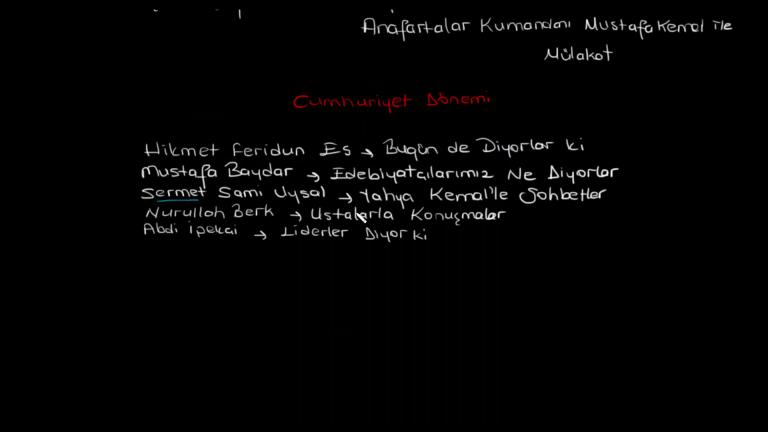 Anafartalar Kumandanı Mustafa Kemal ile
Mülakat
Cumhuriyet Dönemi
Hikmet Feridun Es → Bugün de Diyorlar ki
Mustafa Baydar → Edebiyatçılarımız Ne Diyorlar
Sermet Sami Uysal → Yahya Kemal'le Sohbetler
Nurullah Berk → Ustalarla Konuşmalar
Abdi İpekçi → Liderler Diyor ki